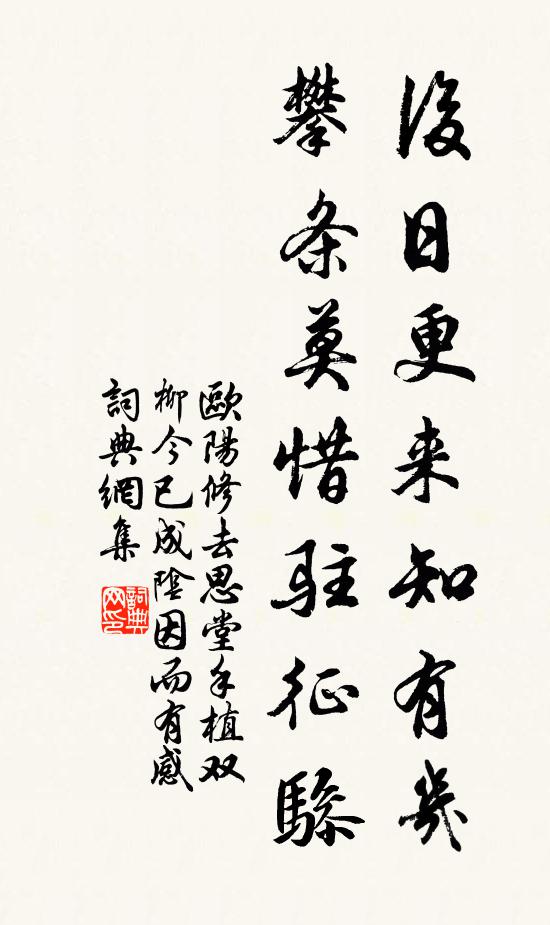 後日更来知有幾
攀条莫惜駐征驂
歐陽修去思堂手植双
柳今已成陰因而有感
詞典網集
詞典
网印